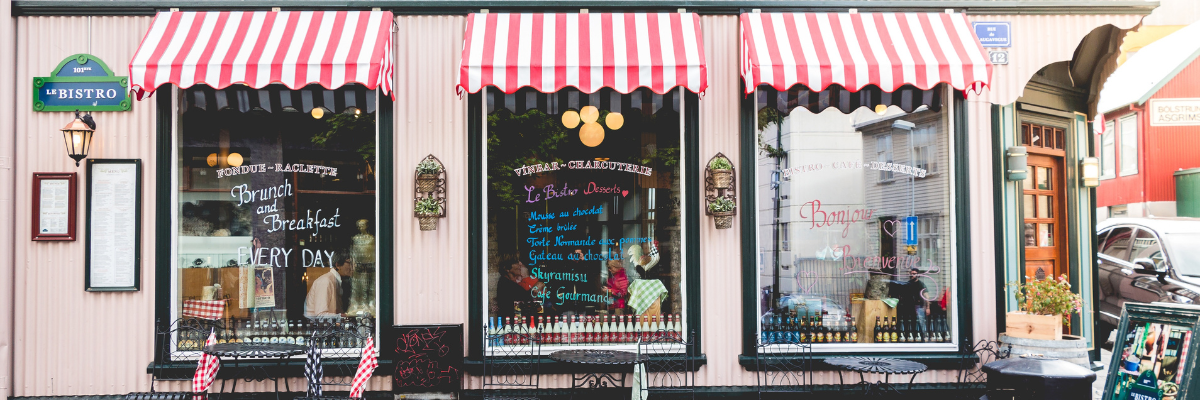 101BIS
LE BISTRO
FONDUE~RACLETTE
Brunch
and
Breakfast
EVERY DAY
VÍNBAR~CHARCUTERIE
Le Bistro Desserts
Mousse au chocolat
Crème brûlée
Tarte Normande aux pommes
Gateau au chocolat
Skyramisu
Café Gourmand
BISTRO~CAFÉ~DESSERTS
Bonjour
Bienvenue
12
BÓLSTRUN
ÁSGRÍMS
BISTRO